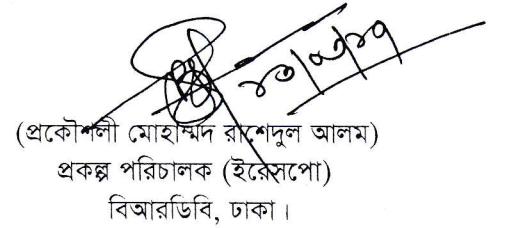 (প্রকৌশলী মোহাম্মদ রাশেদুল আলম)
প্রকল্প পরিচালক (ইরেসপো)
বিআরডিবি, ঢাকা।